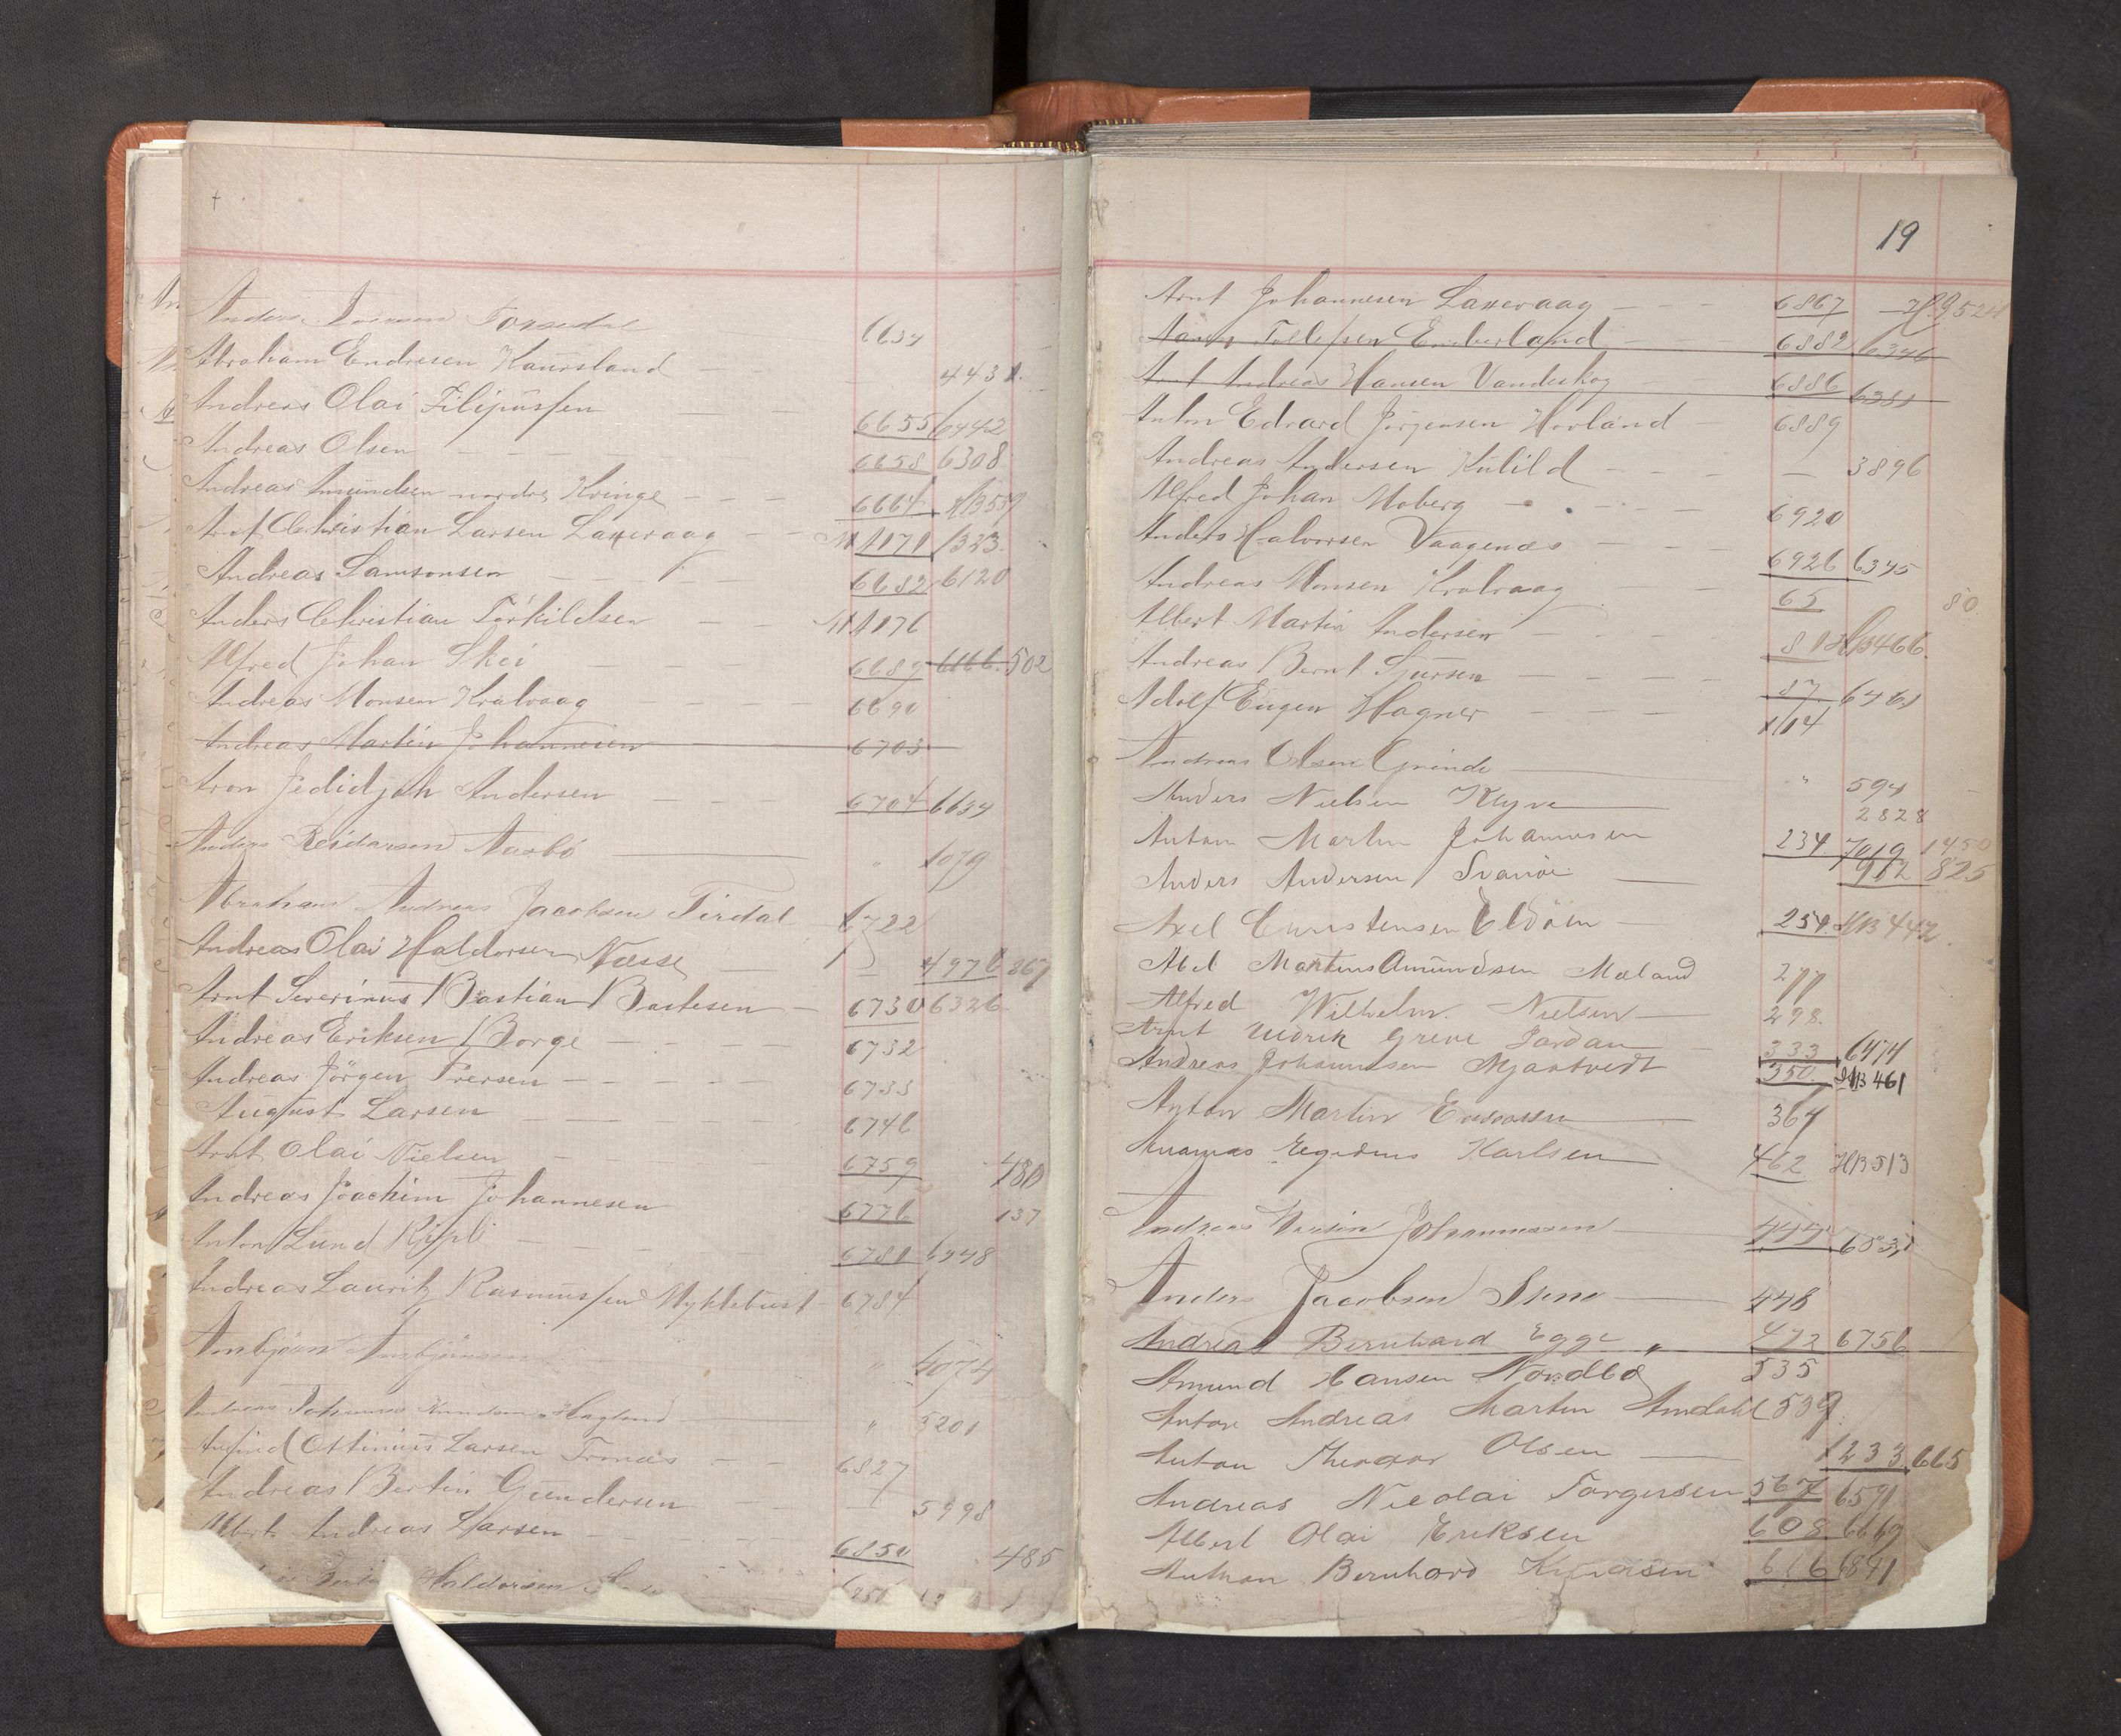 Anders Torsdal 6634
Abraham Endresen Kaursland 4431
Andreas Olai Filipussen 6655 6442
Andreas Olsen 6658 6308
Andreas Amundsen nordre Kvinge 6664 HB 539
Christian Larsen Laxevaag 1171 1323
Andreas Samsonsen 6682 6120
Anders Christian Torkildsen 1176
Alfred Johan Skei 6689 6166 502
Andreas Monsen Kralvaag 6690
Andreas Martin Johannesen 6703
Aron Jedidjah Andersen 6704 6639
Anders Reidarsen Aasbö " 1079
Abraham Andreas Jacobsen Tirdal 6722
Andreas Olai Haldorsen Næsse 4976 867
Arnt Severinus Bastian Bastesen 6730 6326
Andreas Eriksen Borge 6732
Andreas Jörgen Iversen 6733
August Larsen 6746
Arnt Olai Nielsen 6759 480
Andreas Joachim Johannesen 6776 137
Anton Lund Ripli 6781 6448
Andreas Lauritz Rasmussen Myklebust 6784
Arnbjörn Arnbjörnsen " 4074
Johannes Knudsen Hagland " 5201
Ottinius Larsen 6827
Andreas Bertin Gundersen 5998
Albert Andreas Larsen 6850 485
Haldorsen
19
Arnt Johannesen Laxevaag 6867
Tollefsen Emberland 6882 6346
Arnt Andreas Hansen Vandeskog 6886 6381
Anton Edvard Jörgensen Hovland 6889
Andreas Andersen Kulild 3896
Alfred Johan Moberg 6920
Anders Halvorsen Vaagenæs 6926 6395
Andreas Monsen Kralvaag 65 80
Albert Martin Andersen 81 HB 466
Andreas Bernt Sjursen 87 6461
Adolf Eugen Wagner 114
Andreas Olsen Grinde " 594
Anders Nielsen Klyve 2828
Anton Martin Johannesen 234 7019 1450
Anders Andersen Svanöe 912 825
Axel Christensen Eldöen 254 HB 442
Abel Martens Amundsen Mæland 277
Alfred Wilhelm Nielsen 298
Arnt Greve Jordan 333 6474
Andreas Johannesen Mjaatvedt 350 HB 461
Anton Martin 364
Egidius Karlsen 462 HB 513
Andreas Johannessen 444
Anders Jacobsen 448
Andreas Bernhard Egge " 472 6756
Amund Hansen Nordbö 535
Anton Andreas Martin Amdahl 539
Anton Theodor Olsen 1233 665
Andreas Nicolai Torgersen 567 6591
Albert Olai Eriksen 608 6669
Anthon Bernhard 616 6841